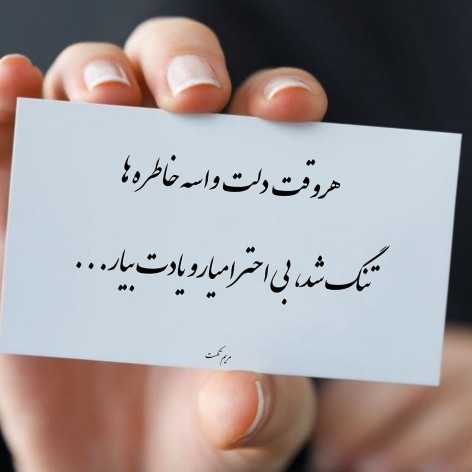 هروقت دلت واسه خاطره ها
تنگ شد، بی احترامیارو یادت بیار...
مریم